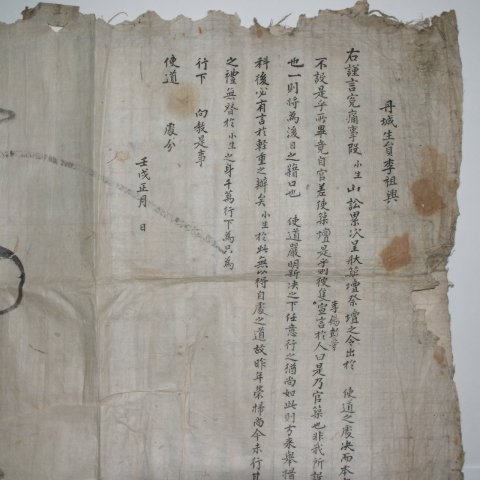 丹城生員李祖興
右謹言寃痛事段小生山訟累次呈狀築壇祭壇之令出於 使道之處决而本
不設是乎所畢竟自官差使築壇是乎則彼隻李錫 宣言於人曰是乃官築也非我所
也一則將爲後日之藉口也 使道嚴明斷决之下任意行之猶尚如此則方來舉措
科後必有言於輕重之辦矣小生於此無以得自處之道故昨年榮掃尚今未行其
之禮無替於小生之身千萬行下爲只爲
行下 向教是事
使道 處分
壬戌正月 日